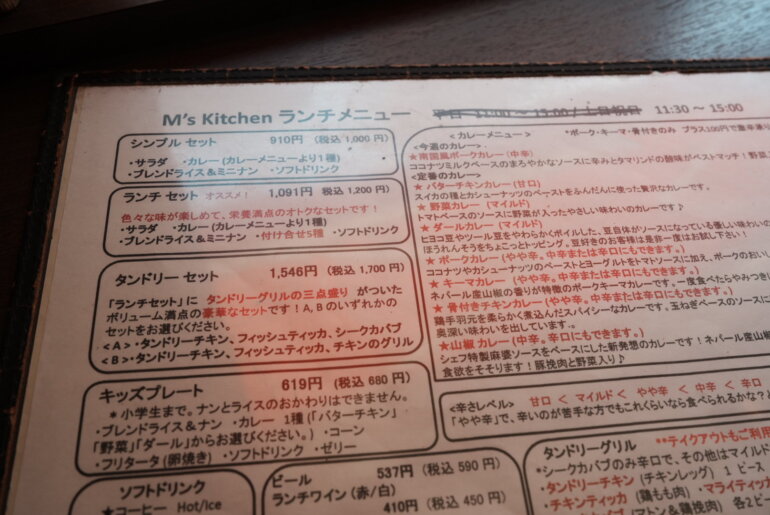 M's Kitchen ランチメニュー 11:30 ～ 15:00
シンプル セット 910円 (税込 1,000 円)
・サラダ ・カレー (カレーメニューより1種)
・ブレンドライス＆ミニナン ・ソフトドリンク
ランチ セット オススメ! 1,091円 税込 1,200 円)
色々な味が楽しめて、栄養満点のオトクなセットです！
・サラダ ・カレー (カレーメニューより1種)
・ブレンドライス＆ミニナン ・付け合せ5種 ・ソフトドリンク
タンドリー セット 1,546円 (税込 1,700 円)
「ランチセット」に タンドリーグリルの三点盛り がついた
ボリューム満点の豪華なセットです！A, Bのいずれかの
セットをお選びください。
<A>・タンドリーチキン、フィッシュティッカ、シークカバブ
<B>・タンドリーチキン、フィッシュティッカ、チキンのグリル
キッズプレート 619円 (税込 680 円)
＊小学生まで。ナンとライスのおかわりはできません。
・ブレンドライス＆ナン ・カレー 1種 (「バターチキン」
「野菜」「ダール」からお選びください。) ・コーン
・フリタータ (卵焼き) ・ソフトドリンク ・ゼリー
ソフトドリンク
★コーヒー Hot/Ice
ビール 537円 (税込 590 円)
ランチワイン (赤/白)
410円 (税込 450 円)
<カレーメニュー> *ポーク・キーマ・骨付きのみ プラス100円で激辛
<今週のカレー>
★南国風ポークカレー (中辛)
ココナツミルクベースのまろやかなソースに辛みとタマリンドの酸味がベストマッチ！野菜
<定番のカレー>
★ バターチキンカレー (甘口)
スイカの種とカシューナッツのペーストをふんだんに使った贅沢なカレーです。
★ 野菜カレー (マイルド)
トマトベースのソースに野菜が入ったやさしい味わいのカレーです♪
★ ダールカレー (マイルド)
ヒヨコ豆やツール豆をやわらかくボイルした、豆自体がソースになっている優しい味わいの
ほうれんそうをちょこっとトッピング。豆好きのお客様は是非一度はお試し下さい！
★ ポークカレー (やや辛。中辛または辛口にもできます。)
ココナツやカシューナッツのペーストとヨーグルトをトマトソースに加え、ポークのおいし
★ キーマカレー (やや辛。中辛または辛口にもできます。)
ネパール産山椒の香りが特徴のポークキーマカレーです。一度食べたらやみつき
★ 骨付きチキンカレー (やや辛。中辛または辛口にもできます。)
鶏手羽元を柔らかく煮込んだスパイシーなカレーです。玉ねぎベースのソースに
奥深い味わいを出しています。
★山椒 カレー (中辛。辛口にもできます。)
シェフ特製麻婆ソースをベースにした新発想のカレーです！ネパール産山椒
食欲をそそります！豚挽肉と野菜入り♪
<辛さレベル> 甘口 < マイルド < やや辛 < 中辛 < 辛口
「やや辛」で、辛いのが苦手な方でもこれくらいなら食べられるかな？
タンドリーグリル **テイクアウトもご利用
・シークカバブのみ辛口で、その他はマイルド
・タンドリーチキン (チキンレッグ) 1 ピース
・チキンティッカ (鶏もも肉) ・マライティッカ
(マトン＆鶏挽肉) 各2ピ